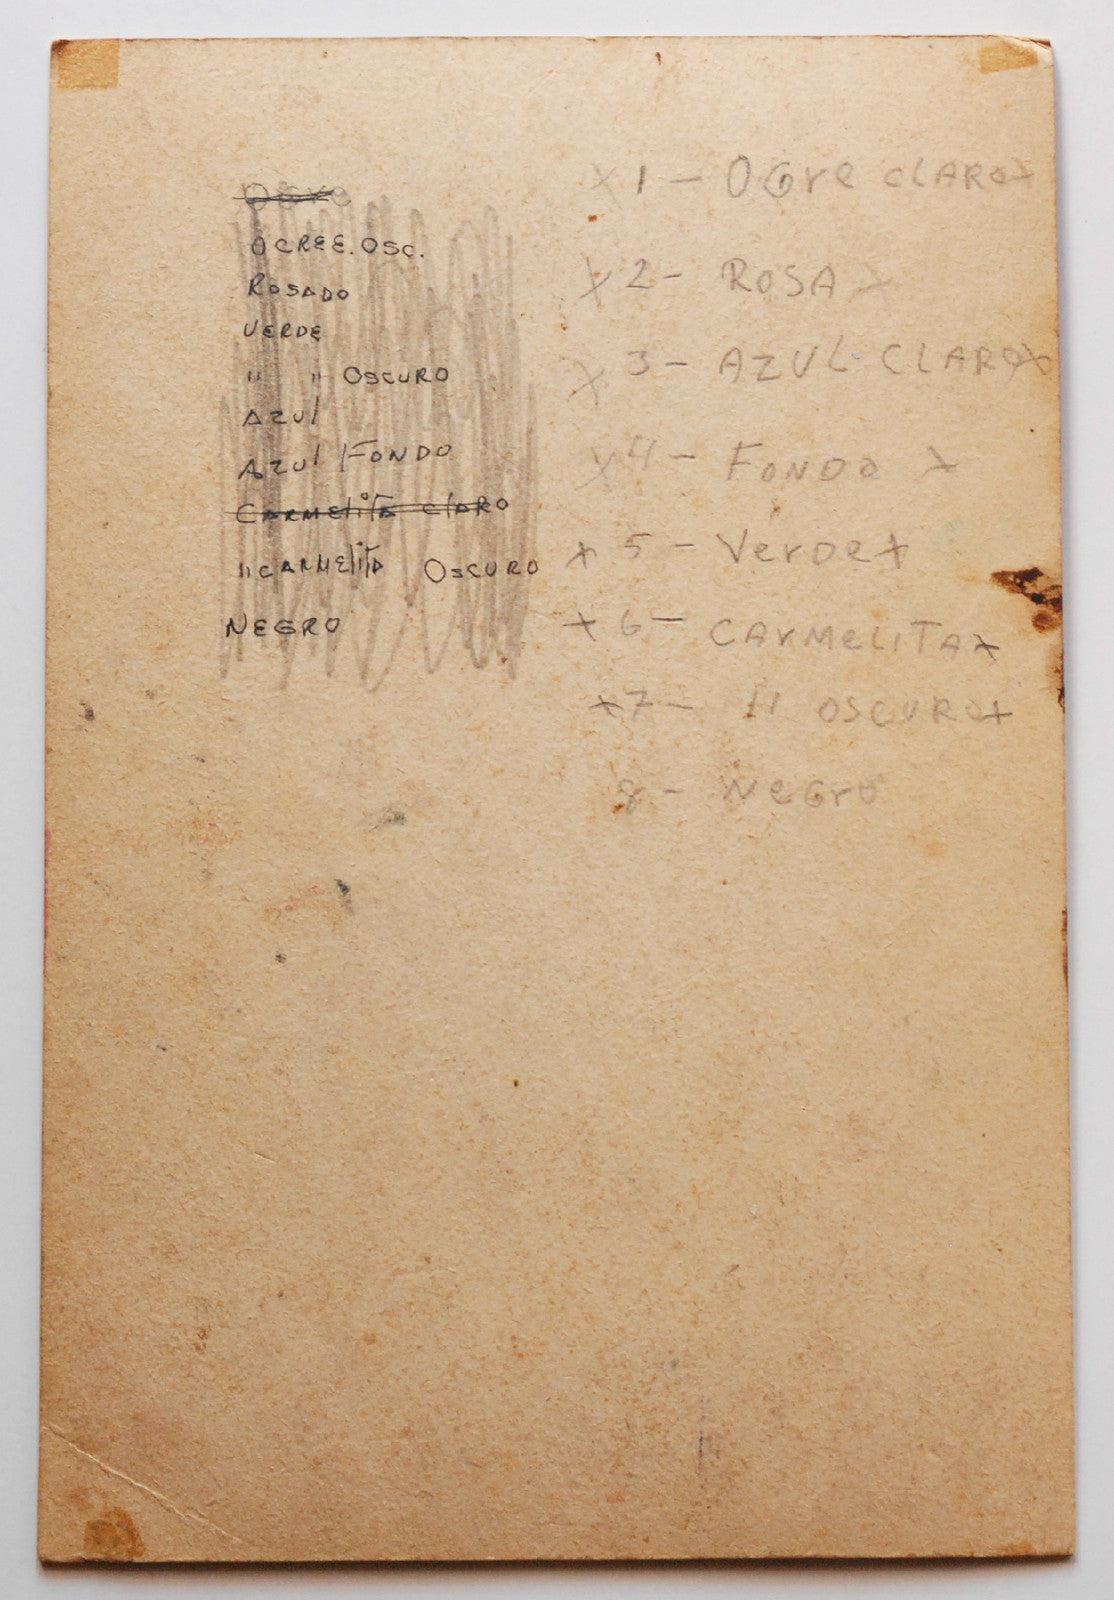 Ogre
OCREE. OSC.
ROSADO
VERDE
" " OSCURO
AZUL
AZUL FONDO
CARMELITA CLARO
" CARMELITA OSCURO
NEGRO
X 1 - OGre CLARO X
X 2 - ROSA X
X 3 - AZUL CLARO X
X 4 - FONDO X
X 5 - VerDe X
X 6 - CArMeLITA X
X 7 - " OSCURO X
8 - NeGrO